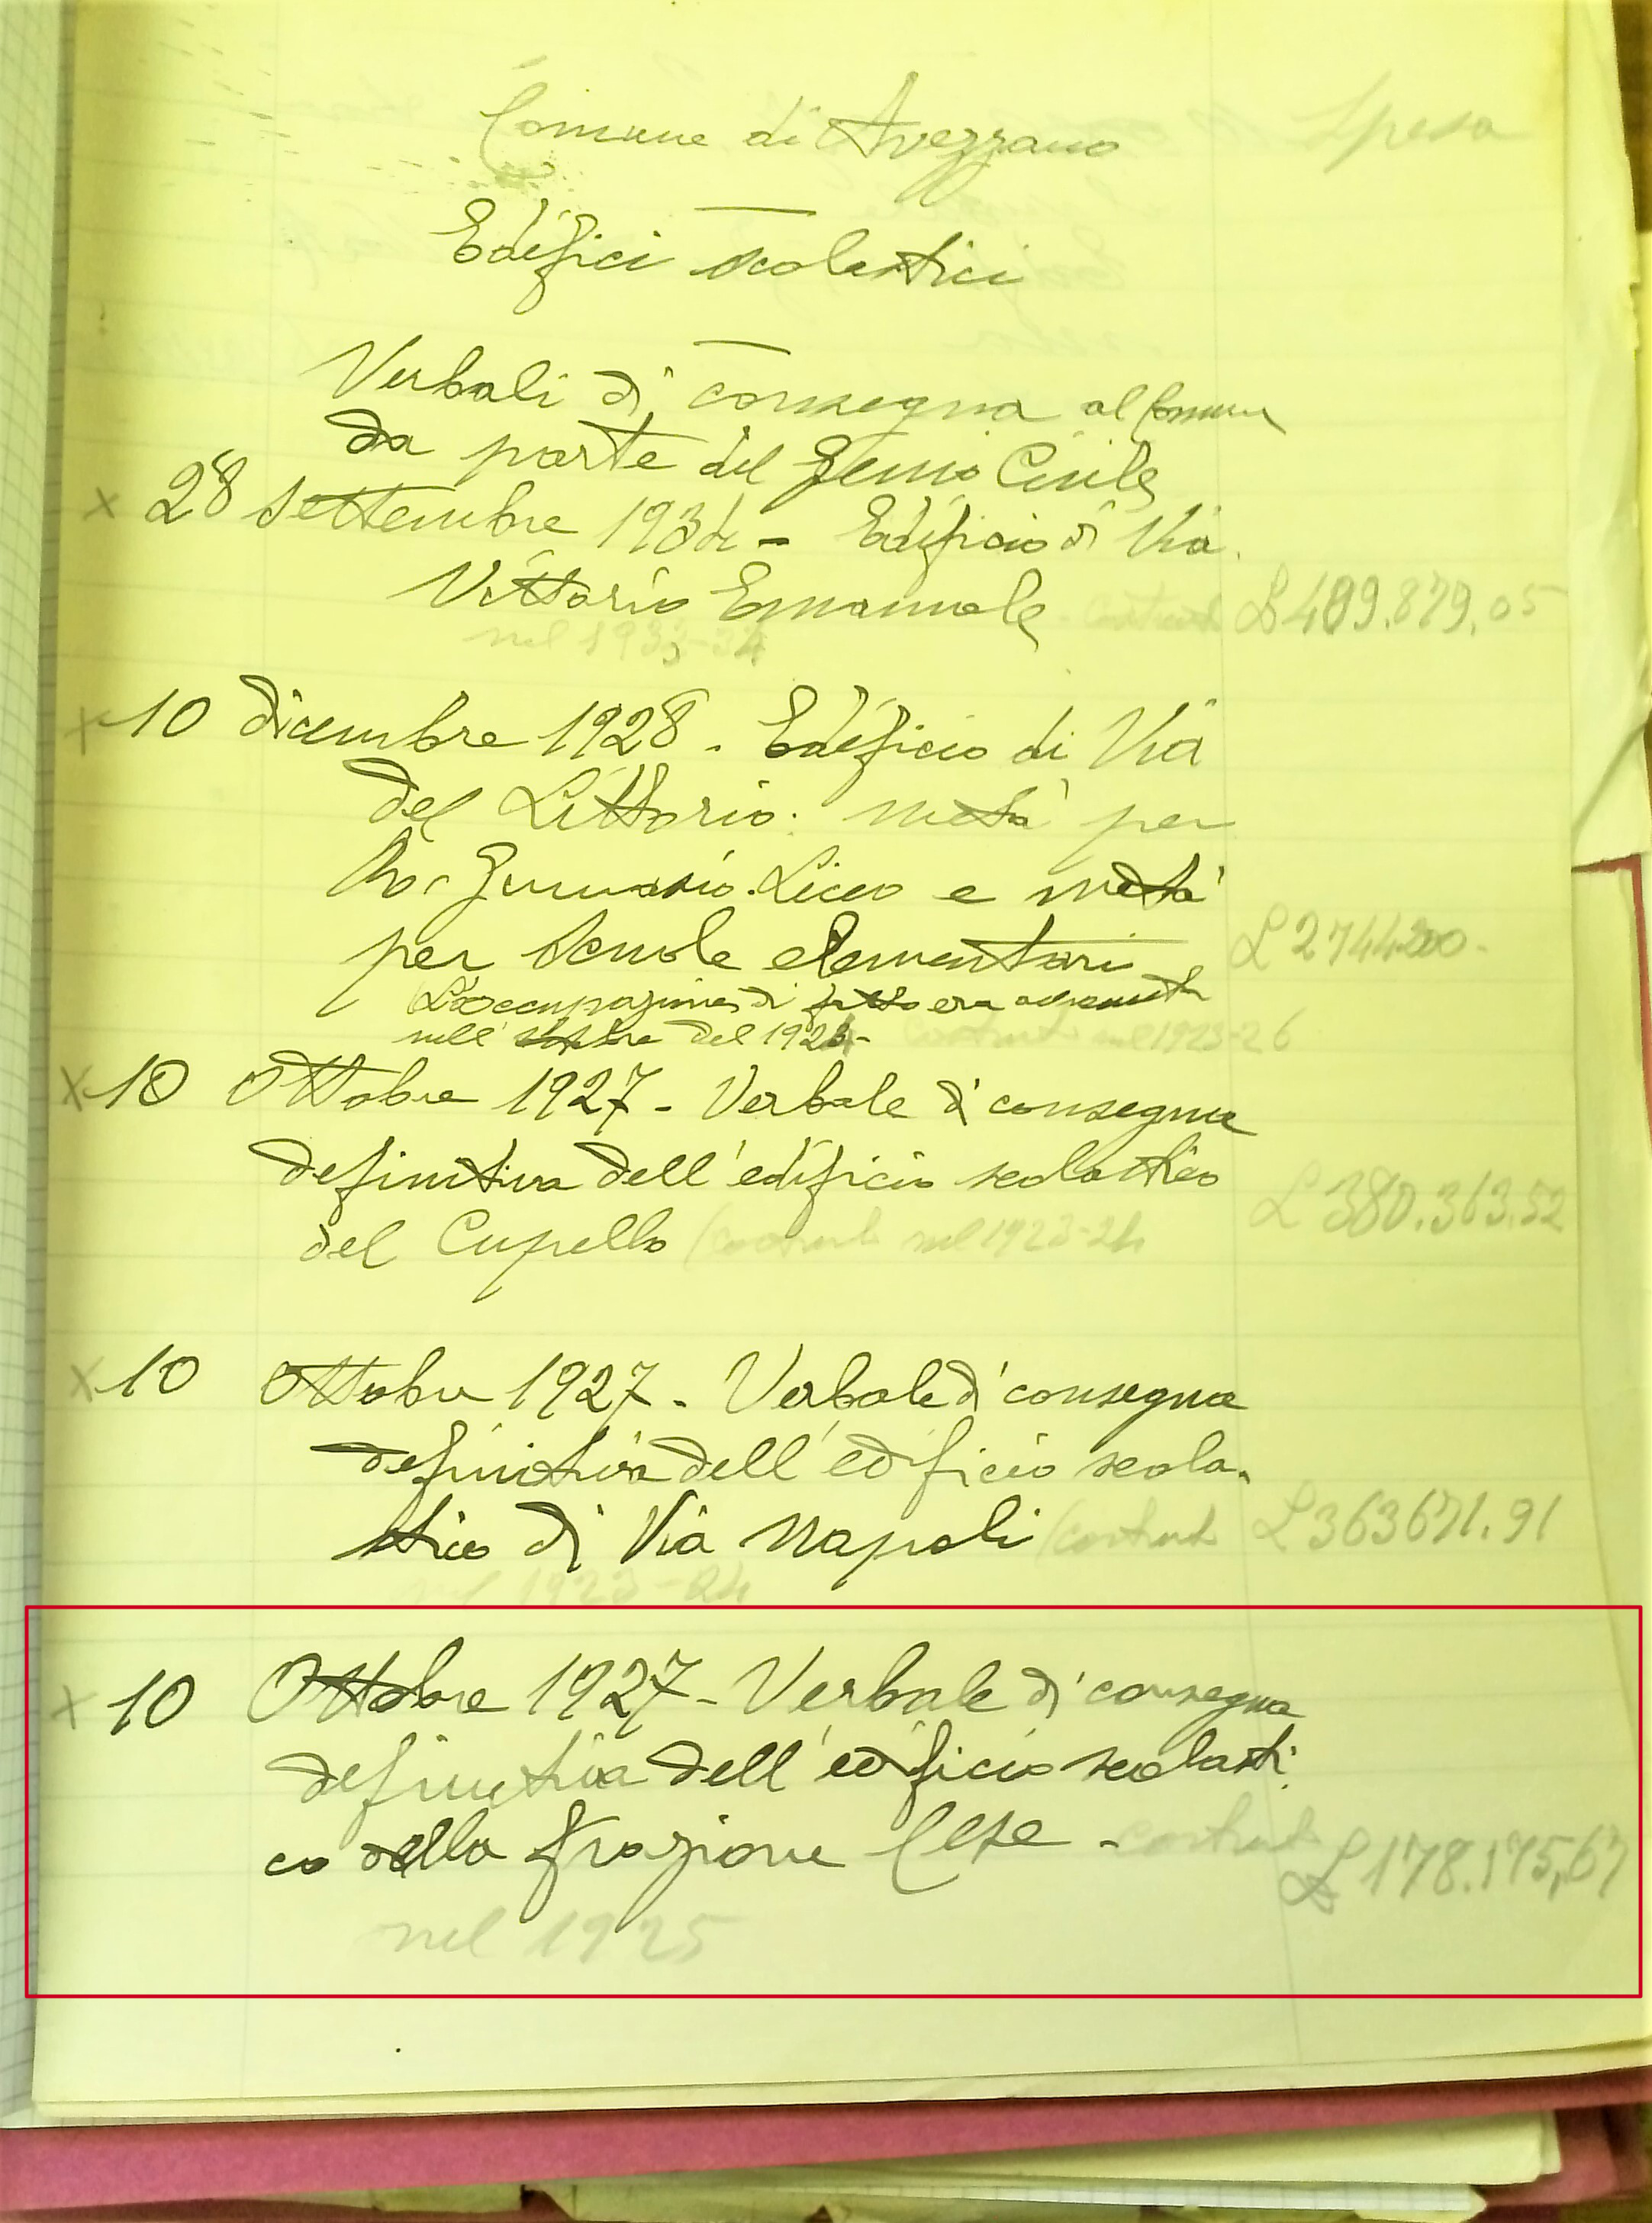 Comune di Avezzano
Spesa
Edifici scolastici
Verbali di consegna al Comune
da parte del Genio Civile
x 28 Settembre 1934 - Edificio di Via
Vittorio Emanuele - costruito L 489.879,05
nel 1933-34
x 10 dicembre 1928 - Edificio di Via
del Littorio: metà per
Ginnasio-Liceo e metà
per scuole elementari L 2744200-
L'occupazione di fatto era avvenuta
nell' del 192 - costruito nel 1923-26
x 10 Ottobre 1927 - Verbale di consegna
definitiva dell'edificio scolastico
del Cupello (costruito nel 1923-24 L 380.363.52
x 10 Ottobre 1927 - Verbale di consegna
definitiva dell'edificio scola-
stico di Via Napoli (costruito L 363671.91
nel 1923-24
x 10 Ottobre 1927 - Verbale di consegna
definitiva dell'edificio scolasti
co della frazione Cese - costruito L 178.175,67
nel 1925